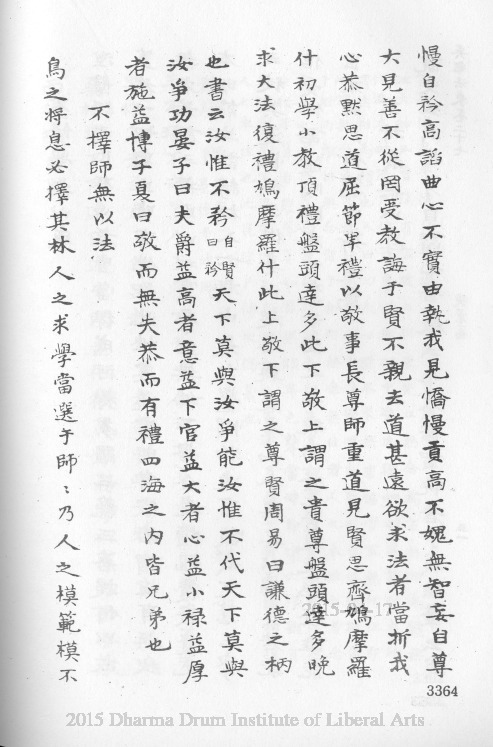 慢自矜高謟曲心不實由執我見憍慢貢高不媿無智妄自尊
大見善不從罔受教誨于賢不親去道甚遠欲求法者當折我
心恭默思道屈節卑禮以敬事長尊師重道見賢思齊鳩摩羅
什初學小教頂禮盤頭達多此下敬上謂之貴尊盤頭達多晚
求大法復禮鳩摩羅什此上敬下謂之尊賢周易曰謙德之柄
也書云汝惟不矜自賢曰矜天下莫與汝爭能汝惟不代天下莫與
汝爭功晏子曰夫爵益高者意益下官益大者心益小祿益厚
者施益博子夏曰敬而無失恭而有禮四海之內皆兄弟也
不擇師無以法
鳥之將息必擇其林人之求學當選于師〻乃人之模範模不
3364
2015-04-17
2015 Dharma Drum Institute of Liberal Arts